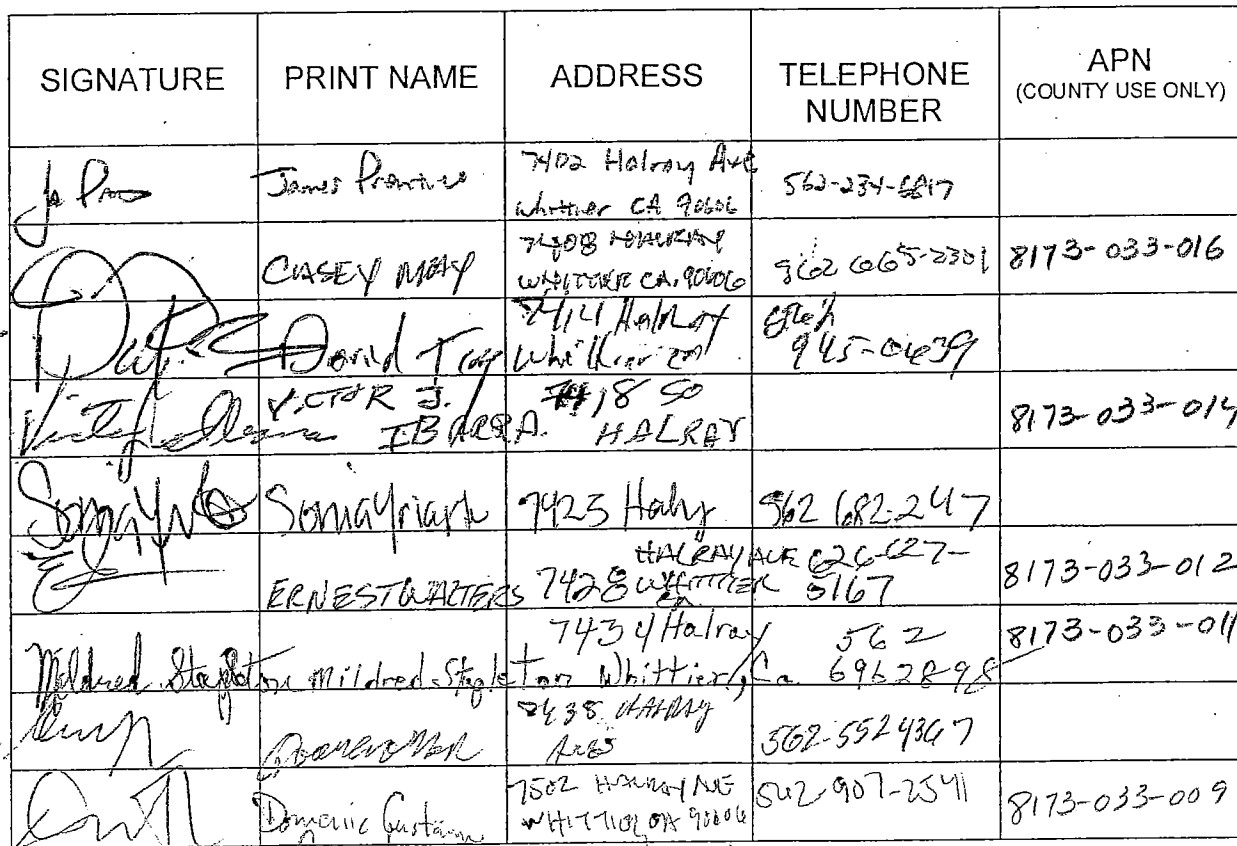 SIGNATURE PRINT NAME ADDRESS TELEPHONE NUMBER APN (COUNTY USE ONLY)
James 7402 Halray Ave
Whittier CA 90606 562-234-6817
CASEY MAY 7408 HALRAY
WHITTIER CA. 90606 562 665-2301 8173-033-016
David 7414 Halray
Whittier 945-0639
VICTOR J.
IBARRA. 7418 SO
HALRAY 8173-033-014
Sonia 7423 562 682-247
ERNEST WALTERS 7428 HALRAY AVE
WHITTIER
CA 626-627-
5167 8173-033-012
Mildred Stapleton Mildred Stapleton 7434 Halray
Whittier, Ca. 562
696 2898 8173-033-011
7438 HALRAY
562-552 4367
Domenic 7502 HALRAY AVE
WHITTIER CA 90606 562-907-2541 8173-033-009